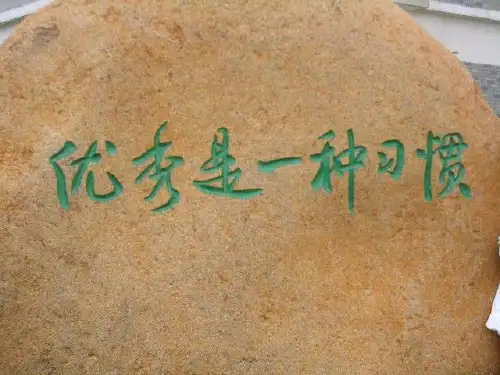 优秀是一种习惯